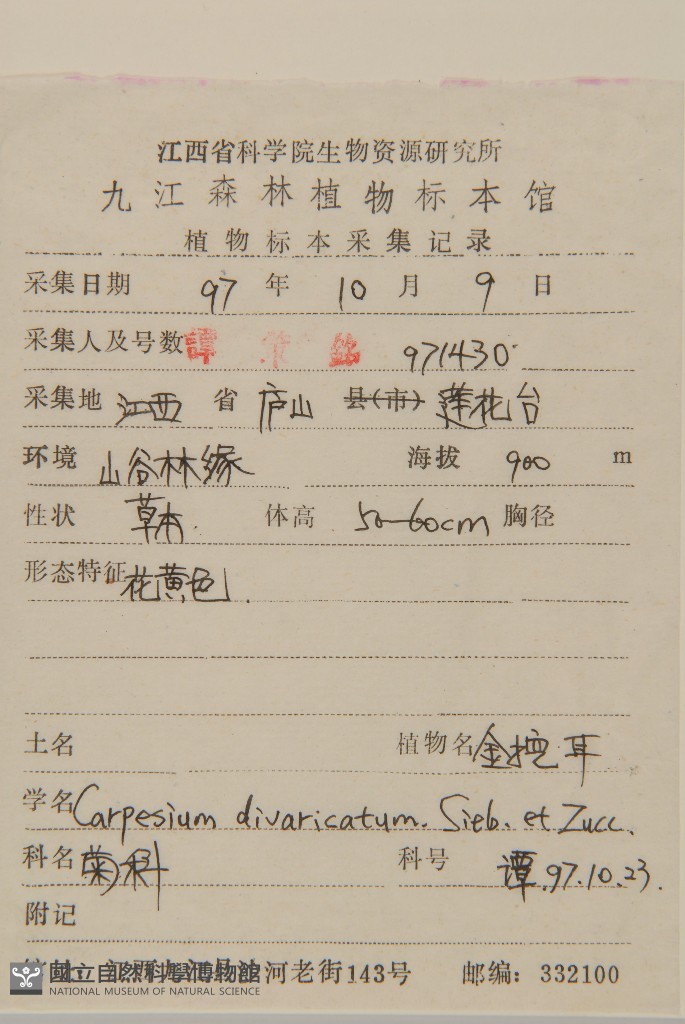 江西省科学院生物资源研究所
九江森林植物标本馆
植物标本采集记录
采集日期 97 年 10 月 9 日
采集人及号数 譚 971430
采集地 江西 省 庐山 县(市) 莲花台
环境 山谷林缘 海拔 900 m
性状 草本 体高 50-60cm 胸径
形态特征 花黄色
土名 植物名 金挖耳
学名 Carpesium divaricatum. Sieb. et Zucc.
科名 菊科 科号 谭.97.10.23.
附记
河老街143号 邮编：332100
國立自然科學博物館
NATIONAL MUSEUM OF NATURAL SCIENCE